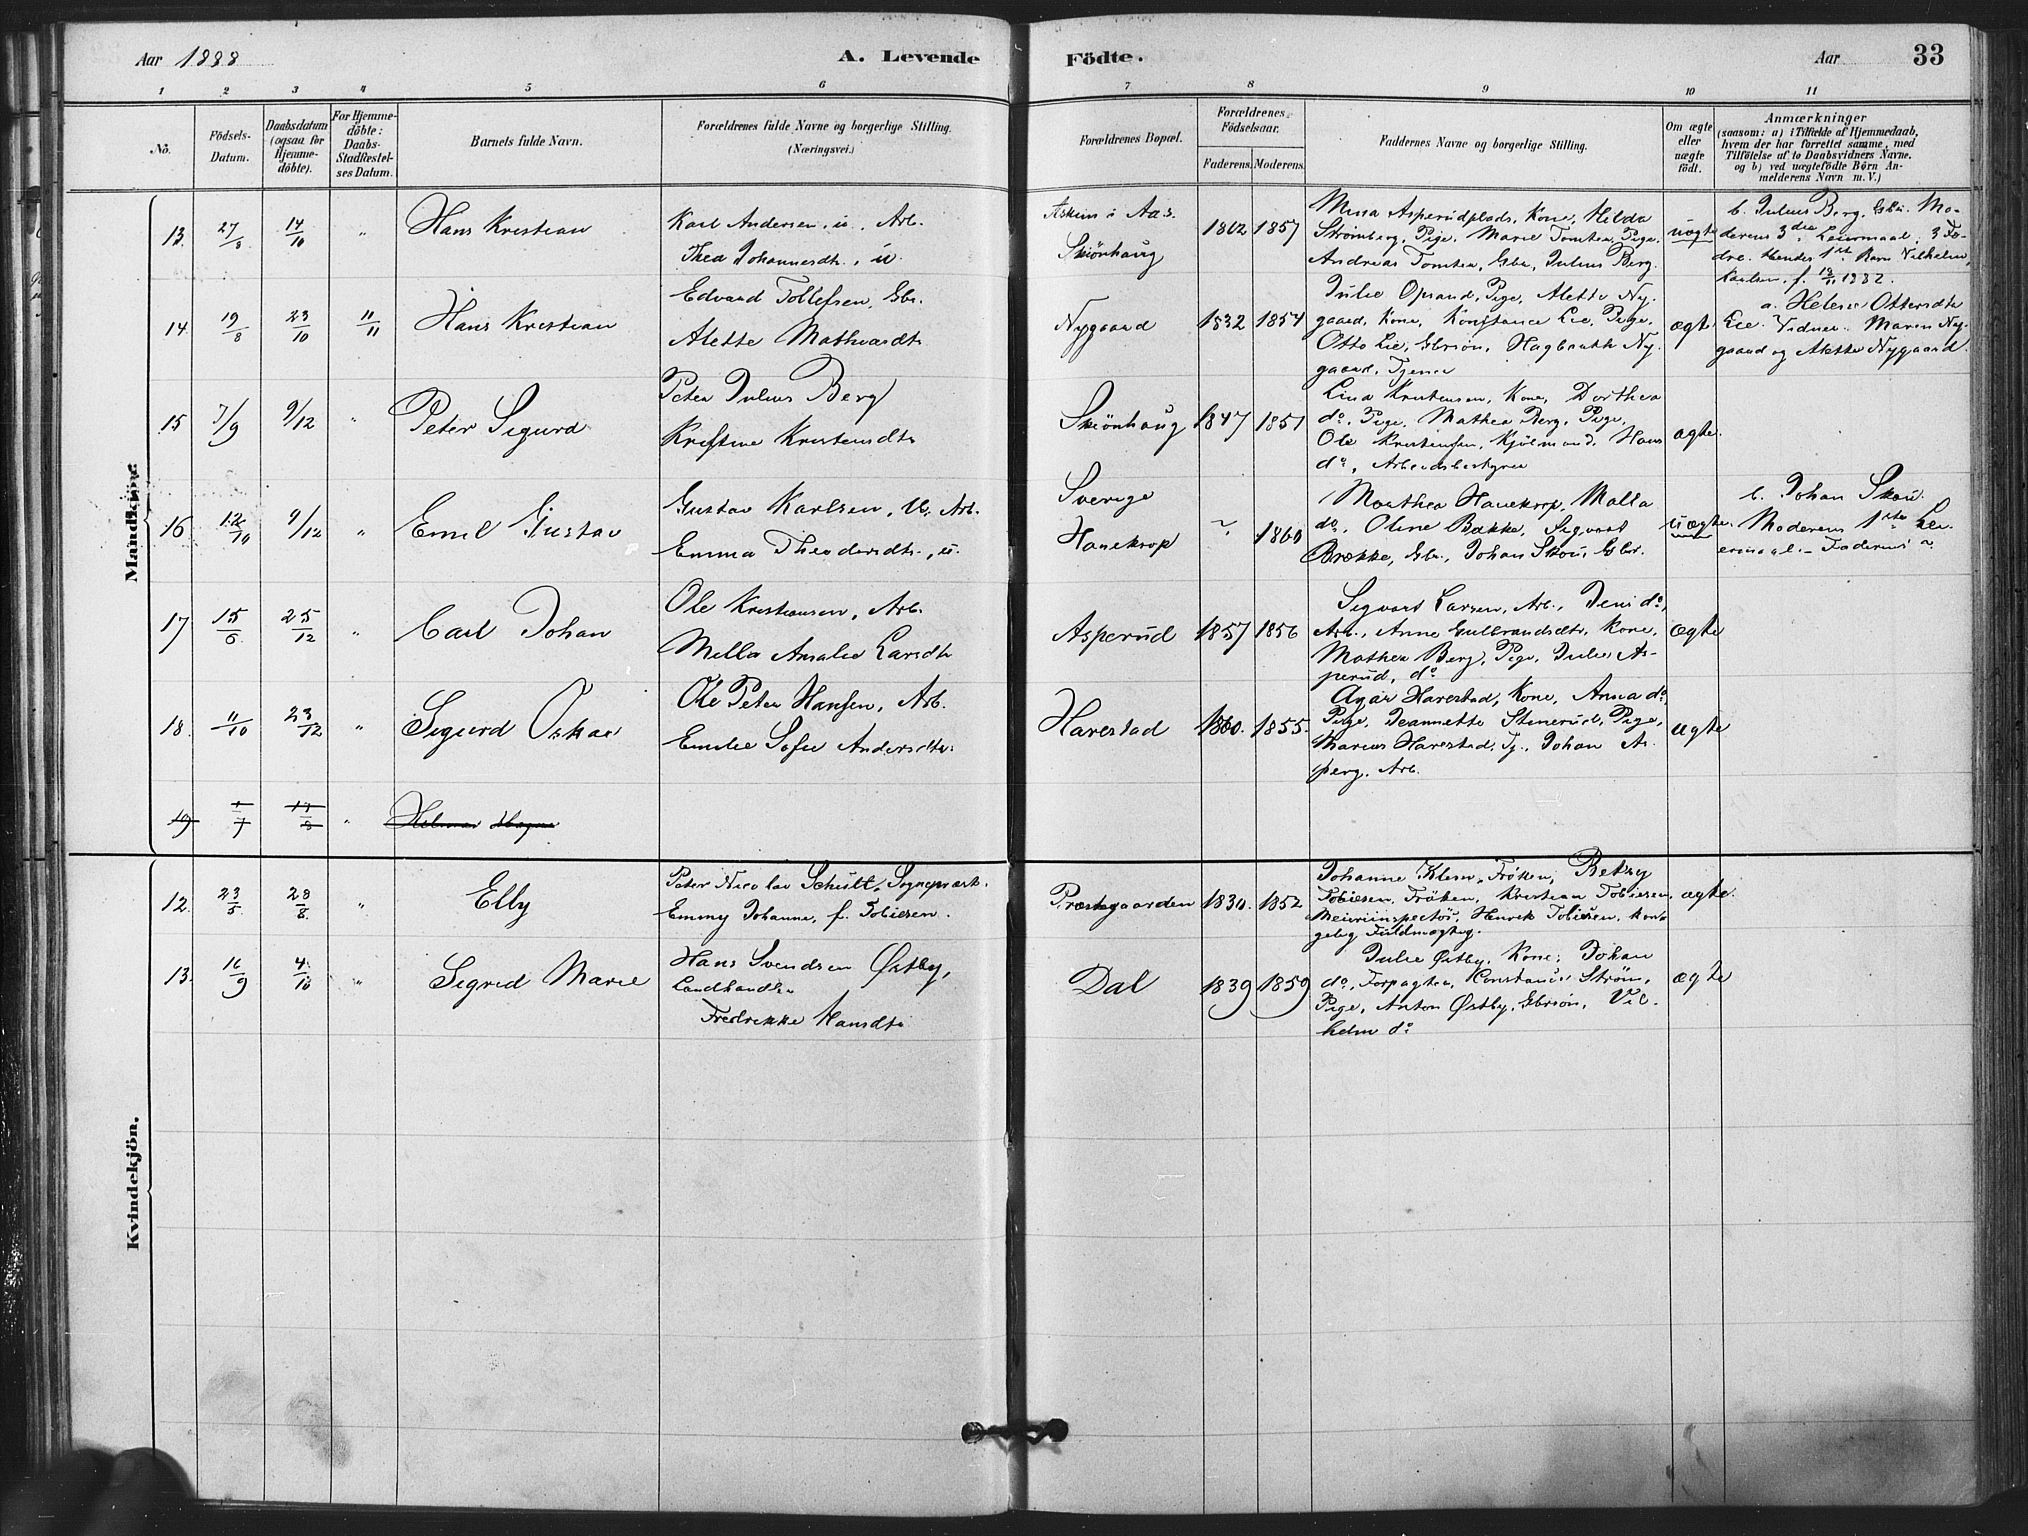 Aar 1888
A. Levende
Födte.
Aar
33
1 2 3 4 5 6 7 8 9 10 11
No.
Födsels-
Datum.
Daabsdatum
(ogsaa for
Hjemme-
döbte).
For Hjemme-
döbte:
Daabs-
Stadfæstel-
ses Datum.
Barnets fulde Navn.
Forældrenes fulde Navne og borgerlige Stilling.
(Næringsvei.)
Forældrenes Bopæl.
Forældrenes
Födselsaar.
Faderens. Moderens.
Faddernes Navne og borgerlige Stilling.
Om ægte
eller
uægte
födt.
Anmærkninger
(saasom: a) i Tilfælde af Hjemmedaab,
hvem der har forrettet samme, med
Tilföielse af to Daabsvidners Navne.
og b) ved uægtefödte Börn An-
melderens Navn m. V.)
Mandkjön.
13. 27/8 14/10 " Hans Kristian
Karl Andersen, u., Arb.
Thea Johannesdtr., u.
Askim i Aas
Skiönhaug
1862 1857
Mina Asperudplads, Kone, Hilda
Strömberg, Pige, Marie Tomter, Pige,
Andreas Tomter, Gbr., Julius Berg.
uægte
b. Julius Berg, Gbr. Mo-
derens 3die Leiermaal, 3 Fæ-
dre. Hendes 1ste Barn Vilhelm
Karlsen, f. 1882.
14 19/8 23/10 11/11 Hans Kristian
Edvard Tollefsen, Gbr.
Alette Mathiasdtr.
Nygaard
1832 1854
Julie Opsand, Pige, Alette Ny-
gaard, Kone, Konstance Lie, Pige,
Otto Lie, Gbrsön, Hagbarth Ny-
gaard, Tjener
ægte
a. Helene Ottersdtr
Lie. Vidner: Maren Ny-
gaard og Alette Nygaard.
15 7/9 9/12 " Peter Sigurd
Peter Julius Berg
Kristine Kristensdtr
Skiönhaug
1847 1851
Lina Kristensen, Kone, Dorthea
do, Pige, Mathea Berg, Pige,
Ole Kristensen, Kjölmand, Hans
do, Arbeidsbestyrer
ægte.
16 12/10 9/12 " Emil Gustav
Gustav Karlsen, U., Arb.
Emma Theodorsdtr., u.
Sverige
Hanekrop
~ 1860
Marthea Hanekrop, Malla
do, Oline Bække, Sigvart
Brække, Gbr., Johan Skou, Gbr.
uægte.
b. Johan Skou.
Moderens 1ste Lei-
ermaal. - Faderens ~
17 15/6 25/12 " Carl Johan
Ole Kristiansen, Arb.
Milla Amalie Larsdtr
Asperud
1857 1856
Sigvart Larsen, Arb., Jens do,
Arb., Anne Gulbrandsdtr, Kone,
Mathea Berg, Pige, Julie As-
perud, do
ægte
18. 11/10 23/12 " Sigurd Oskar
Ole Peter Hansen, Arb.
Emilie Sofie Andersdtr.
Harestad
1860. 1855.
Agar Harestad, Kone, Anna do
Pige, Jeannette Stenerud, Pige,
Marius Harestad, Tj., Johan As-
perg, Arb.
ægte
19 "
Kvindekjön.
12. 23/5 28/8 " Elly
Peter Nicolai Schult, Sogneprest.
Emmy Johanne, f. Tobiesen.
Præstegaarden
1830. 1852
Johanne Klem, Fröken, Betzy
Tobiesen, Fröken, Kristian Tobiesen,
Meieriinspectör, Henrik Tobiesen, kon-
gelig Fuldmægtig.
ægte.
13. 16/9 4/10 " Sigrid Marie
Hans Svendsen Østby,
Landhandler
Fredrikke Hansdtr
Dal
1839 1859
Julie Østby, Kone, Johan
do, Forpagter, Constance Ström,
Pige, Anton Østby, Gbrsön, Vil-
helm do
ægte